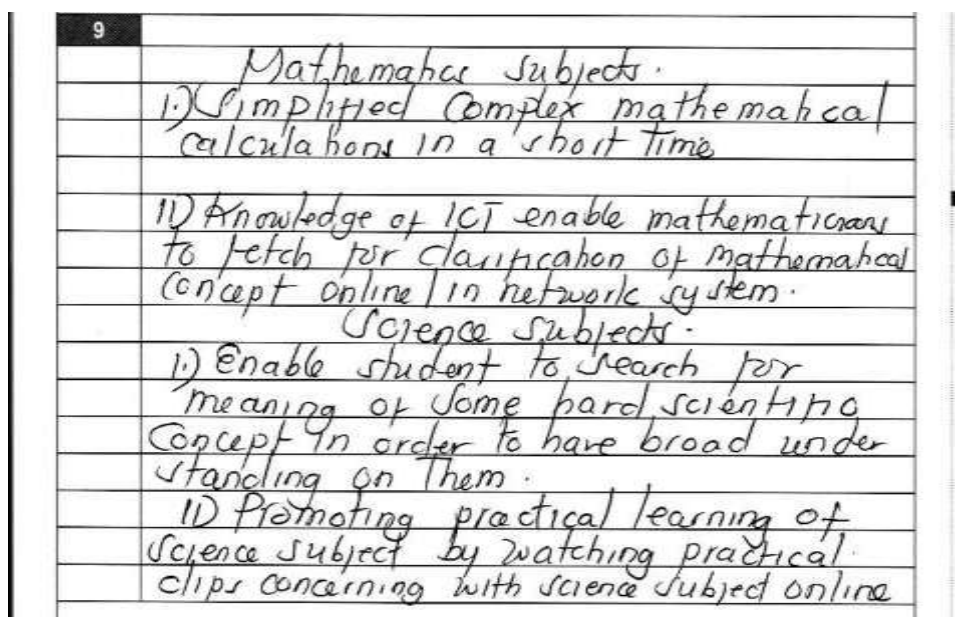 9
Mathematics subjects.
I.) Simplified Complex mathematical
calculations in a short time
II) Knowledge of ICT enable mathematicians
to fetch for clarification of mathematical
concept online / in network system.
Science subjects.
I.) Enable student to search for
meaning of some hard scientific
Concept in order to have broad under
standing on Them.
II) Promoting practical learning of
Science subject by watching practical.
clips concerning with science subject online